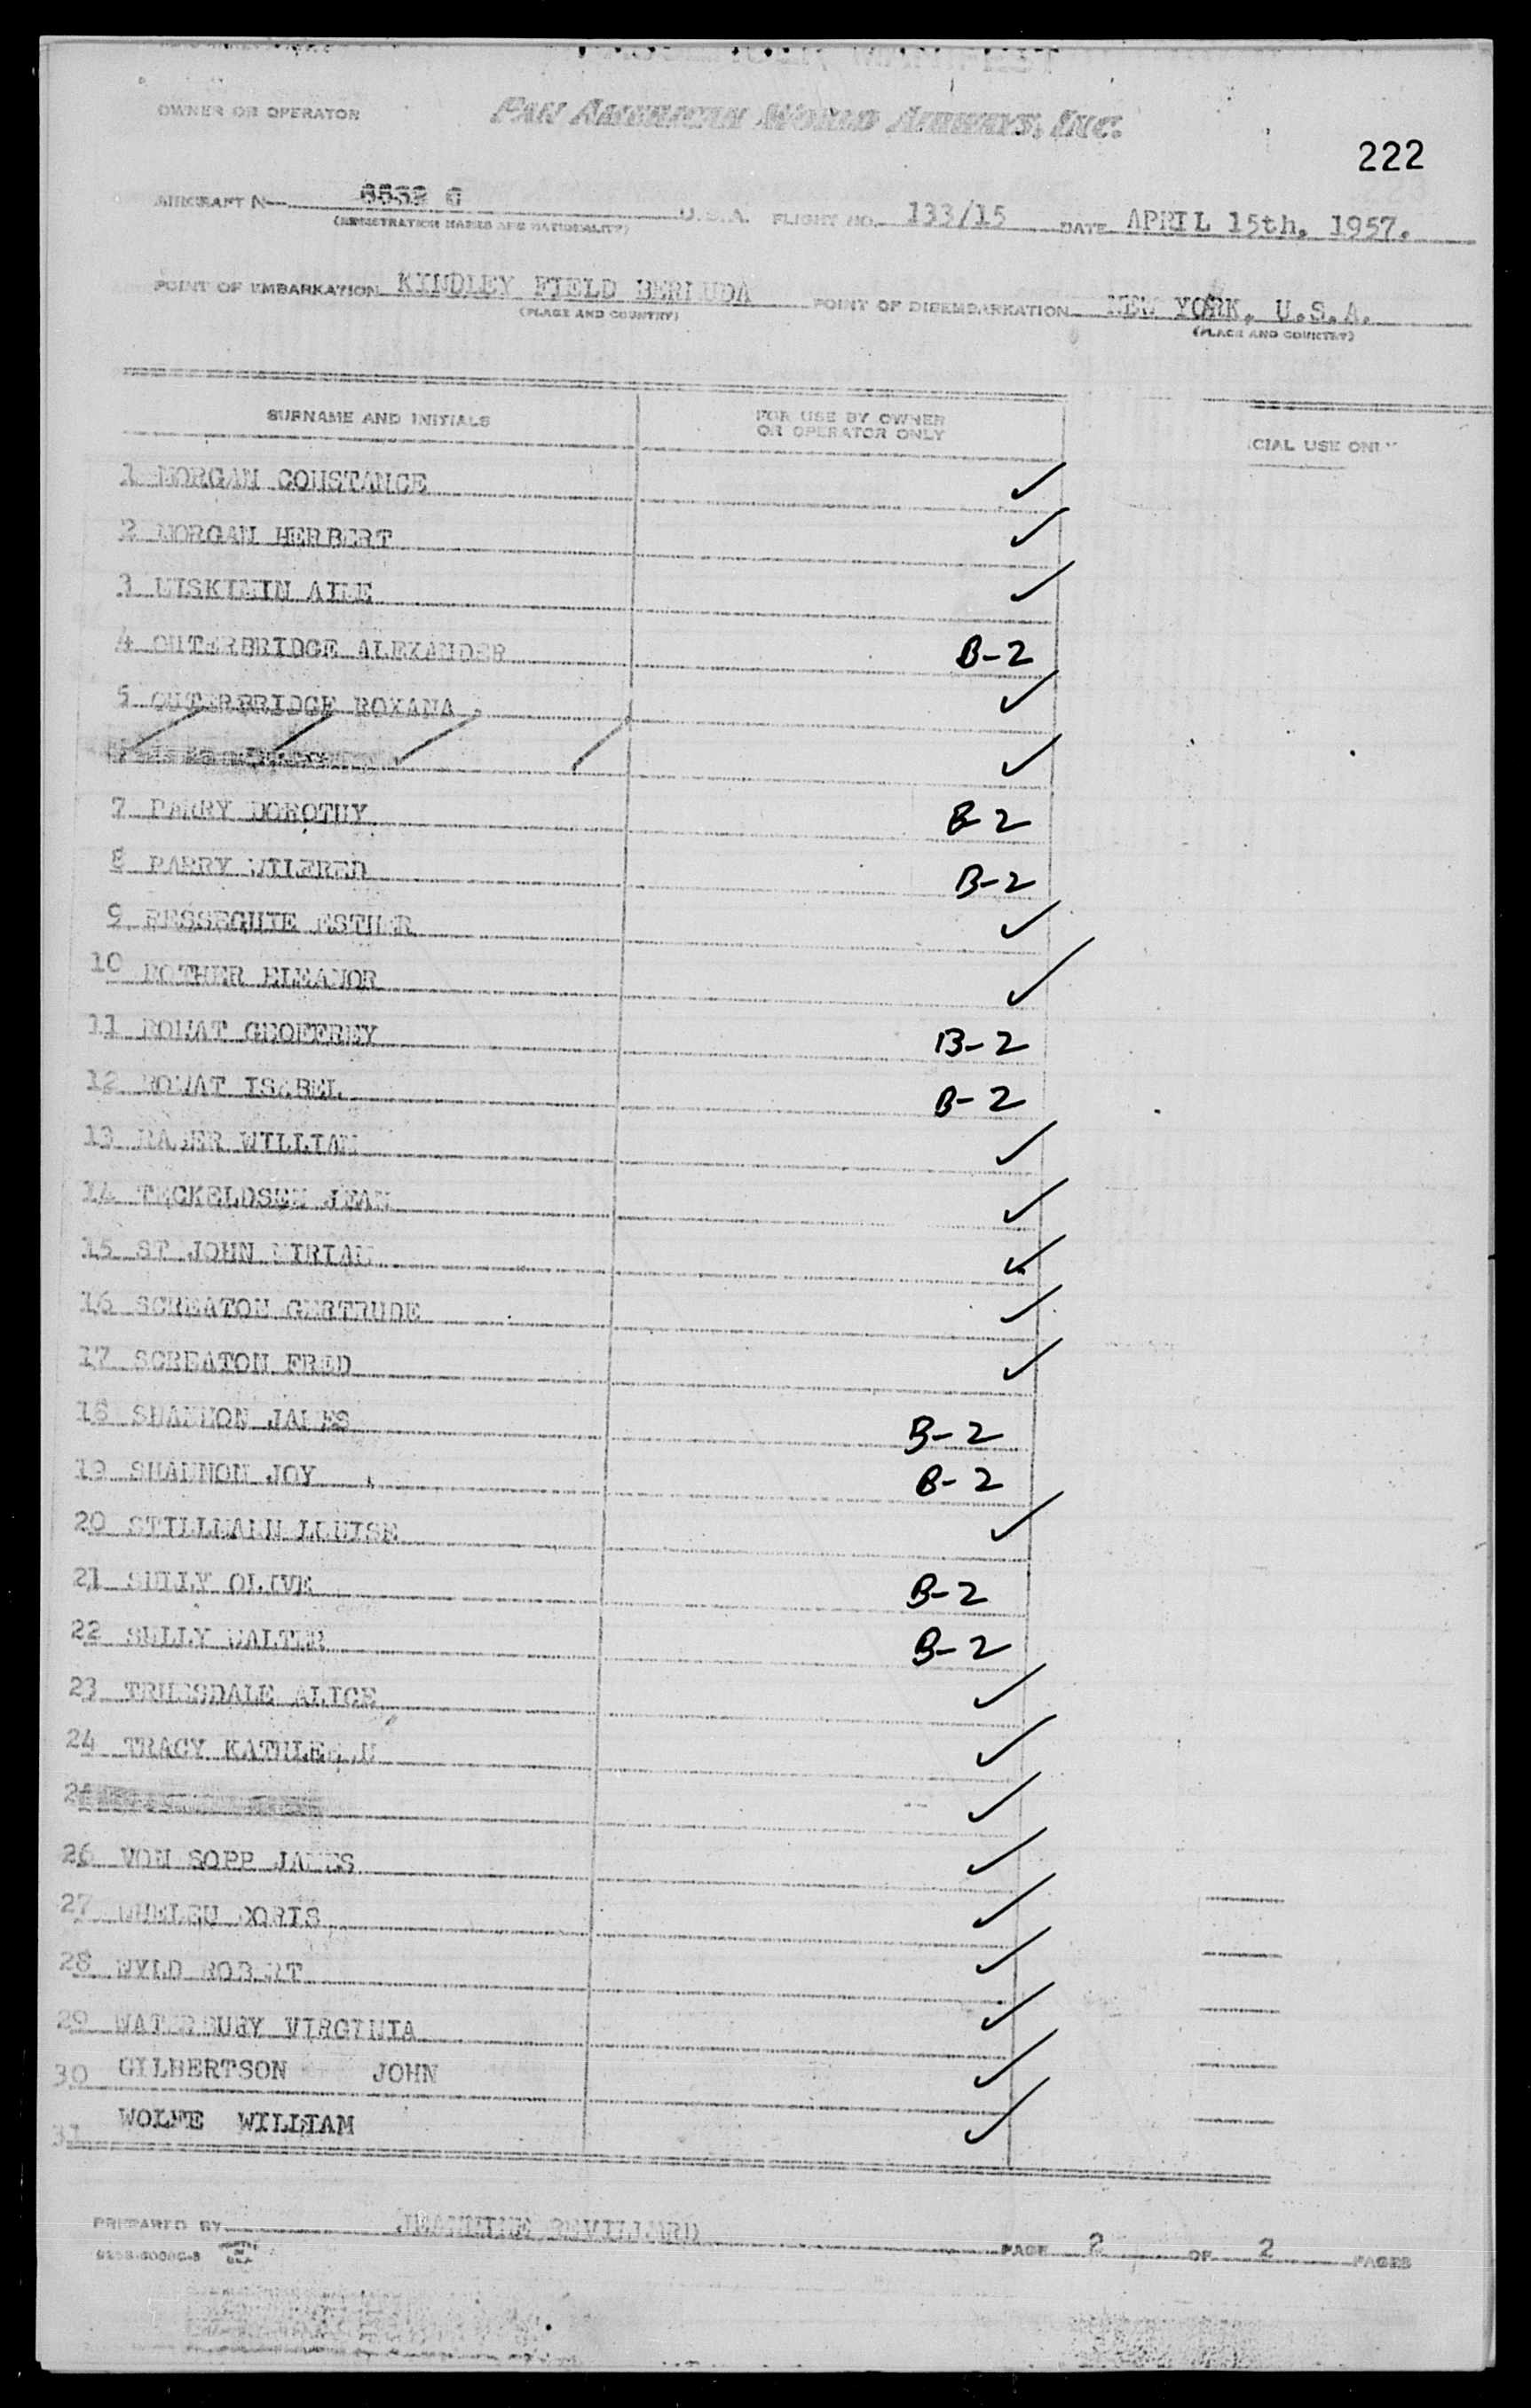 OWNER OR OPERATOR PAN AMERICAN WORLD AIRWAYS, INC.
222
AIRCRAFT N 6532 C U.S.A. FLIGHT NO. 133/15 DATE APRIL 15th. 1957.
(REGISTRATION MARKS AND NATIONALITY)
POINT OF EMBARKATION KINDLEY FIELD BERMUDA POINT OF DISEMBARKATION NEW YORK, U.S.A.
(PLACE AND COUNTRY) (PLACE AND COUNTRY)
SURNAME AND INITIALS FOR USE BY OWNER OR OPERATOR ONLY CIAL USE ONLY
1 MORGAN CONSTANCE ✓
2 MORGAN HERBERT ✓
3 MISKIMIN AILE ✓
4 OUTERBRIDGE ALEXANDER B-2
5 OUTERBRIDGE ROXANA ✓
✓
7 PARRY DOROTHY B-2
8 PARRY WILFRED B-2
9 RESSEGUIE ESTHER ✓
10 ROTHER ELEANOR ✓
11 ROWAT GEOFFREY B-2
12 ROWAT ISABEL B-2
13 WILLIAM ✓
14 TECKELDSEN JEAN ✓
15 ST JOHN MIRIAM ✓
16 SCREATON GERTRUDE ✓
17 SCREATON FRED ✓
18 SHANNON JAMES B-2
19 SHANNON JOY B-2
20 STILLMANN LOUISE ✓
21 SULLY OLIVE B-2
22 SULLY WALTER B-2
23 TRUESDALE ALICE ✓
24 TRACY KATHLEEN ✓
25 ✓
26 VON SOPP JAMES ✓
27 WHELEN DORIS ✓
28 WYLD ROBERT ✓
29 WATERBURY VIRGINIA ✓
30 GILBERTSON JOHN ✓
31 WOLFE WILLIAM ✓
PREPARED BY JEANETTE PAGE 2 OF 2 PAGES